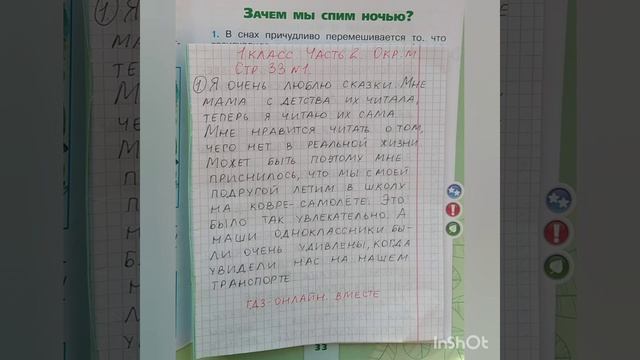 Зачем мы спим ночью?
1. В снах причудливо перемешивается то, что
1 КЛАСС ЧАСТЬ 2. ОКР. М
СТР. 33 №1.
1 Я ОЧЕНЬ ЛЮБЛЮ СКАЗКИ. МНЕ
МАМА С ДЕТСТВА ИХ ЧИТАЛА,
ТЕПЕРЬ Я ЧИТАЮ ИХ САМА.
МНЕ НРАВИТСЯ ЧИТАТЬ О ТОМ,
ЧЕГО НЕТ В РЕАЛЬНОЙ ЖИЗНИ.
МОЖЕТ БЫТЬ ПОЭТОМУ МНЕ
ПРИСНИЛОСЬ, ЧТО МЫ С МОЕЙ
ПОДРУГОЙ ЛЕТИМ В ШКОЛУ
НА КОВРЕ-САМОЛЕТЕ. ЭТО
БЫЛО ТАК УВЛЕКАТЕЛЬНО. А
НАШИ ОДНОКЛАССНИКИ БЫ-
ЛИ ОЧЕНЬ УДИВЛЕНЫ, КОГДА
УВИДЕЛИ НАС НА НАШЕМ
ТРАНСПОРТЕ
ГДЗ-ОНЛАЙН. ВМЕСТЕ
33
InShOt